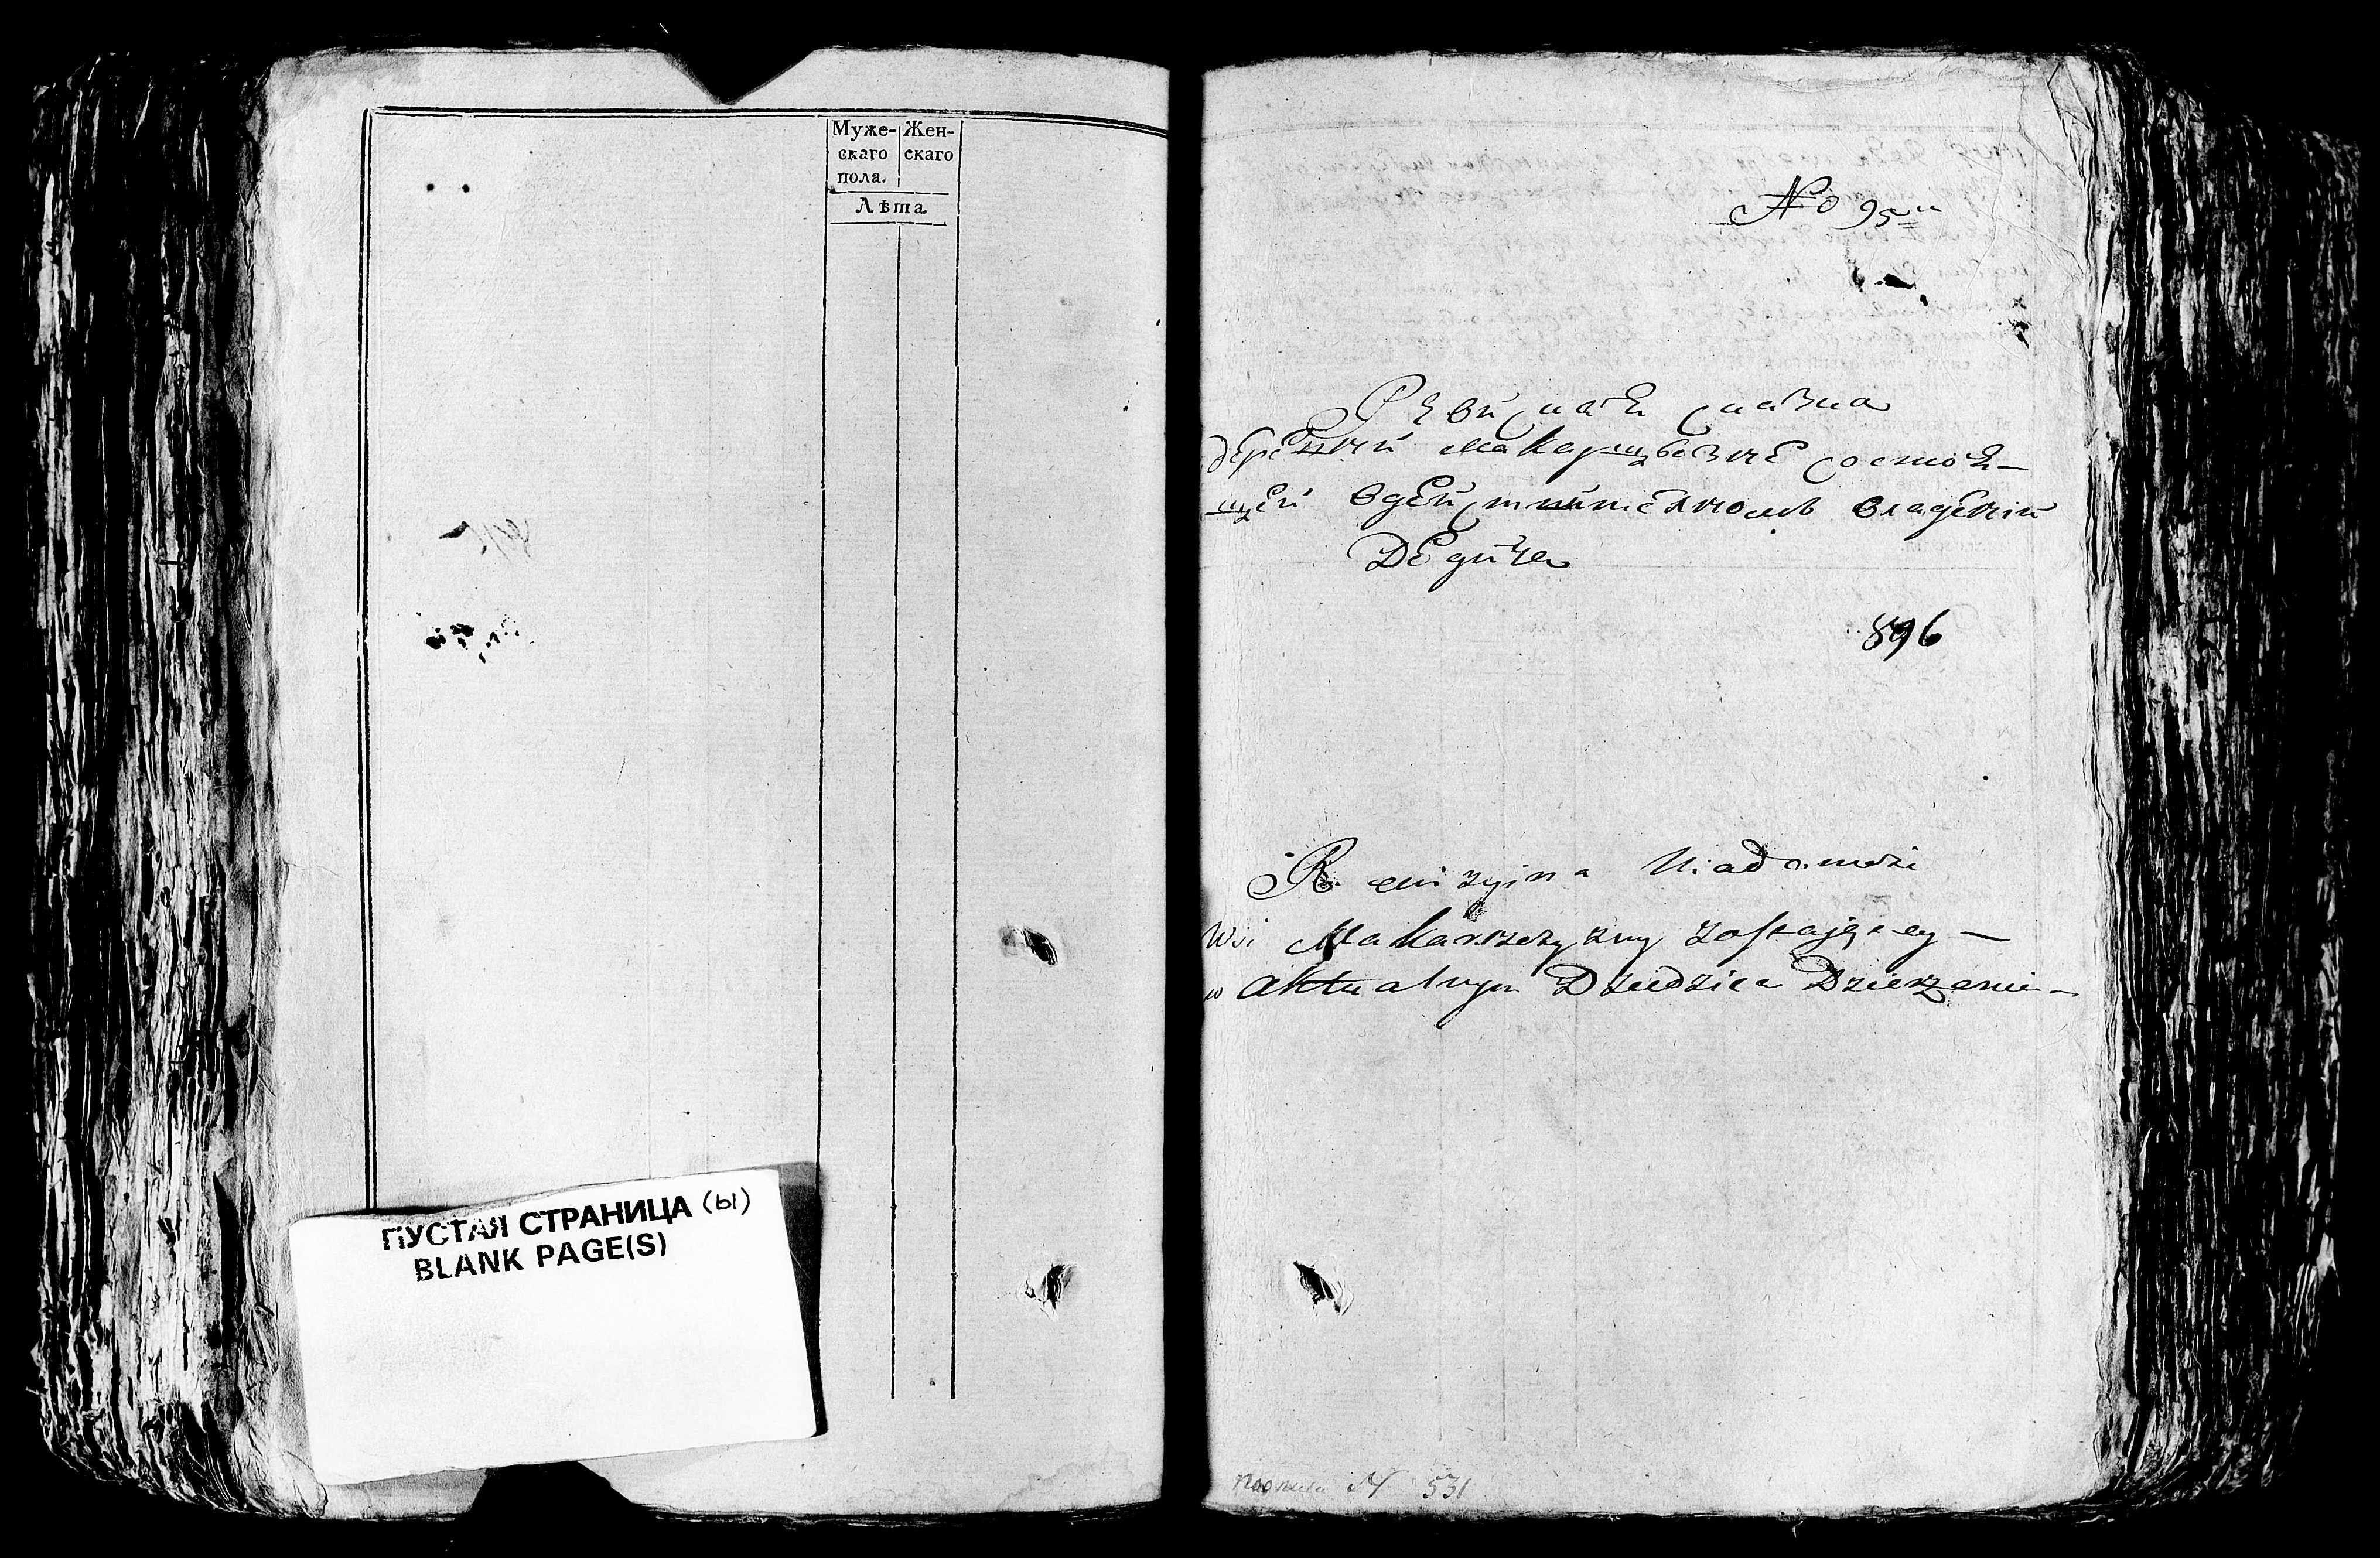 Муже- Жен-
скаго скаго
пола.
Лѣта
ПУСТАЯ СТРАНИЦА (ы)
BLANK PAGE(S)
No 95
Ревиская сказка
деревни Макарщовзне состоя-
щей в действительномъ владении
Дедича
896
Rewizyina Wiadomość
Wsi Makarszczyzny zostaiącey —
w Aktualnym Dziedzica Dzierżeniu —
531